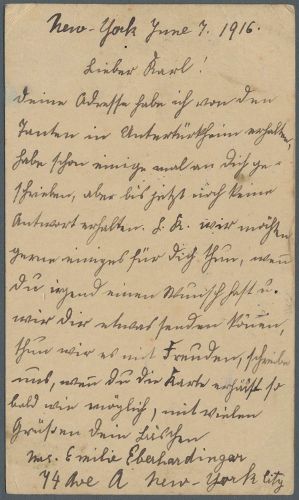 New-York June 7. 1916.
Lieber Karl!
Deine Adresse habe ich von den
Tanten in Untertürkheim erhalten,
habe schon einige mal an Dich ge-
schrieben, aber bis jetzt noch keine
Antwort erhalten. L. K. wir möchten
gerne einiges für Dich thun, wenn
Du irgend einen Wunsch hast u.
wir Dir etwas senden können,
thun wir es mit Freuden, schreibe
uns, wenn Du die Karte erhälst so
bald wie möglich, mit vielen
Grüßen Dein Bäschen
Mrs. Emilie Eberhardinger
74 Ave A New-York City